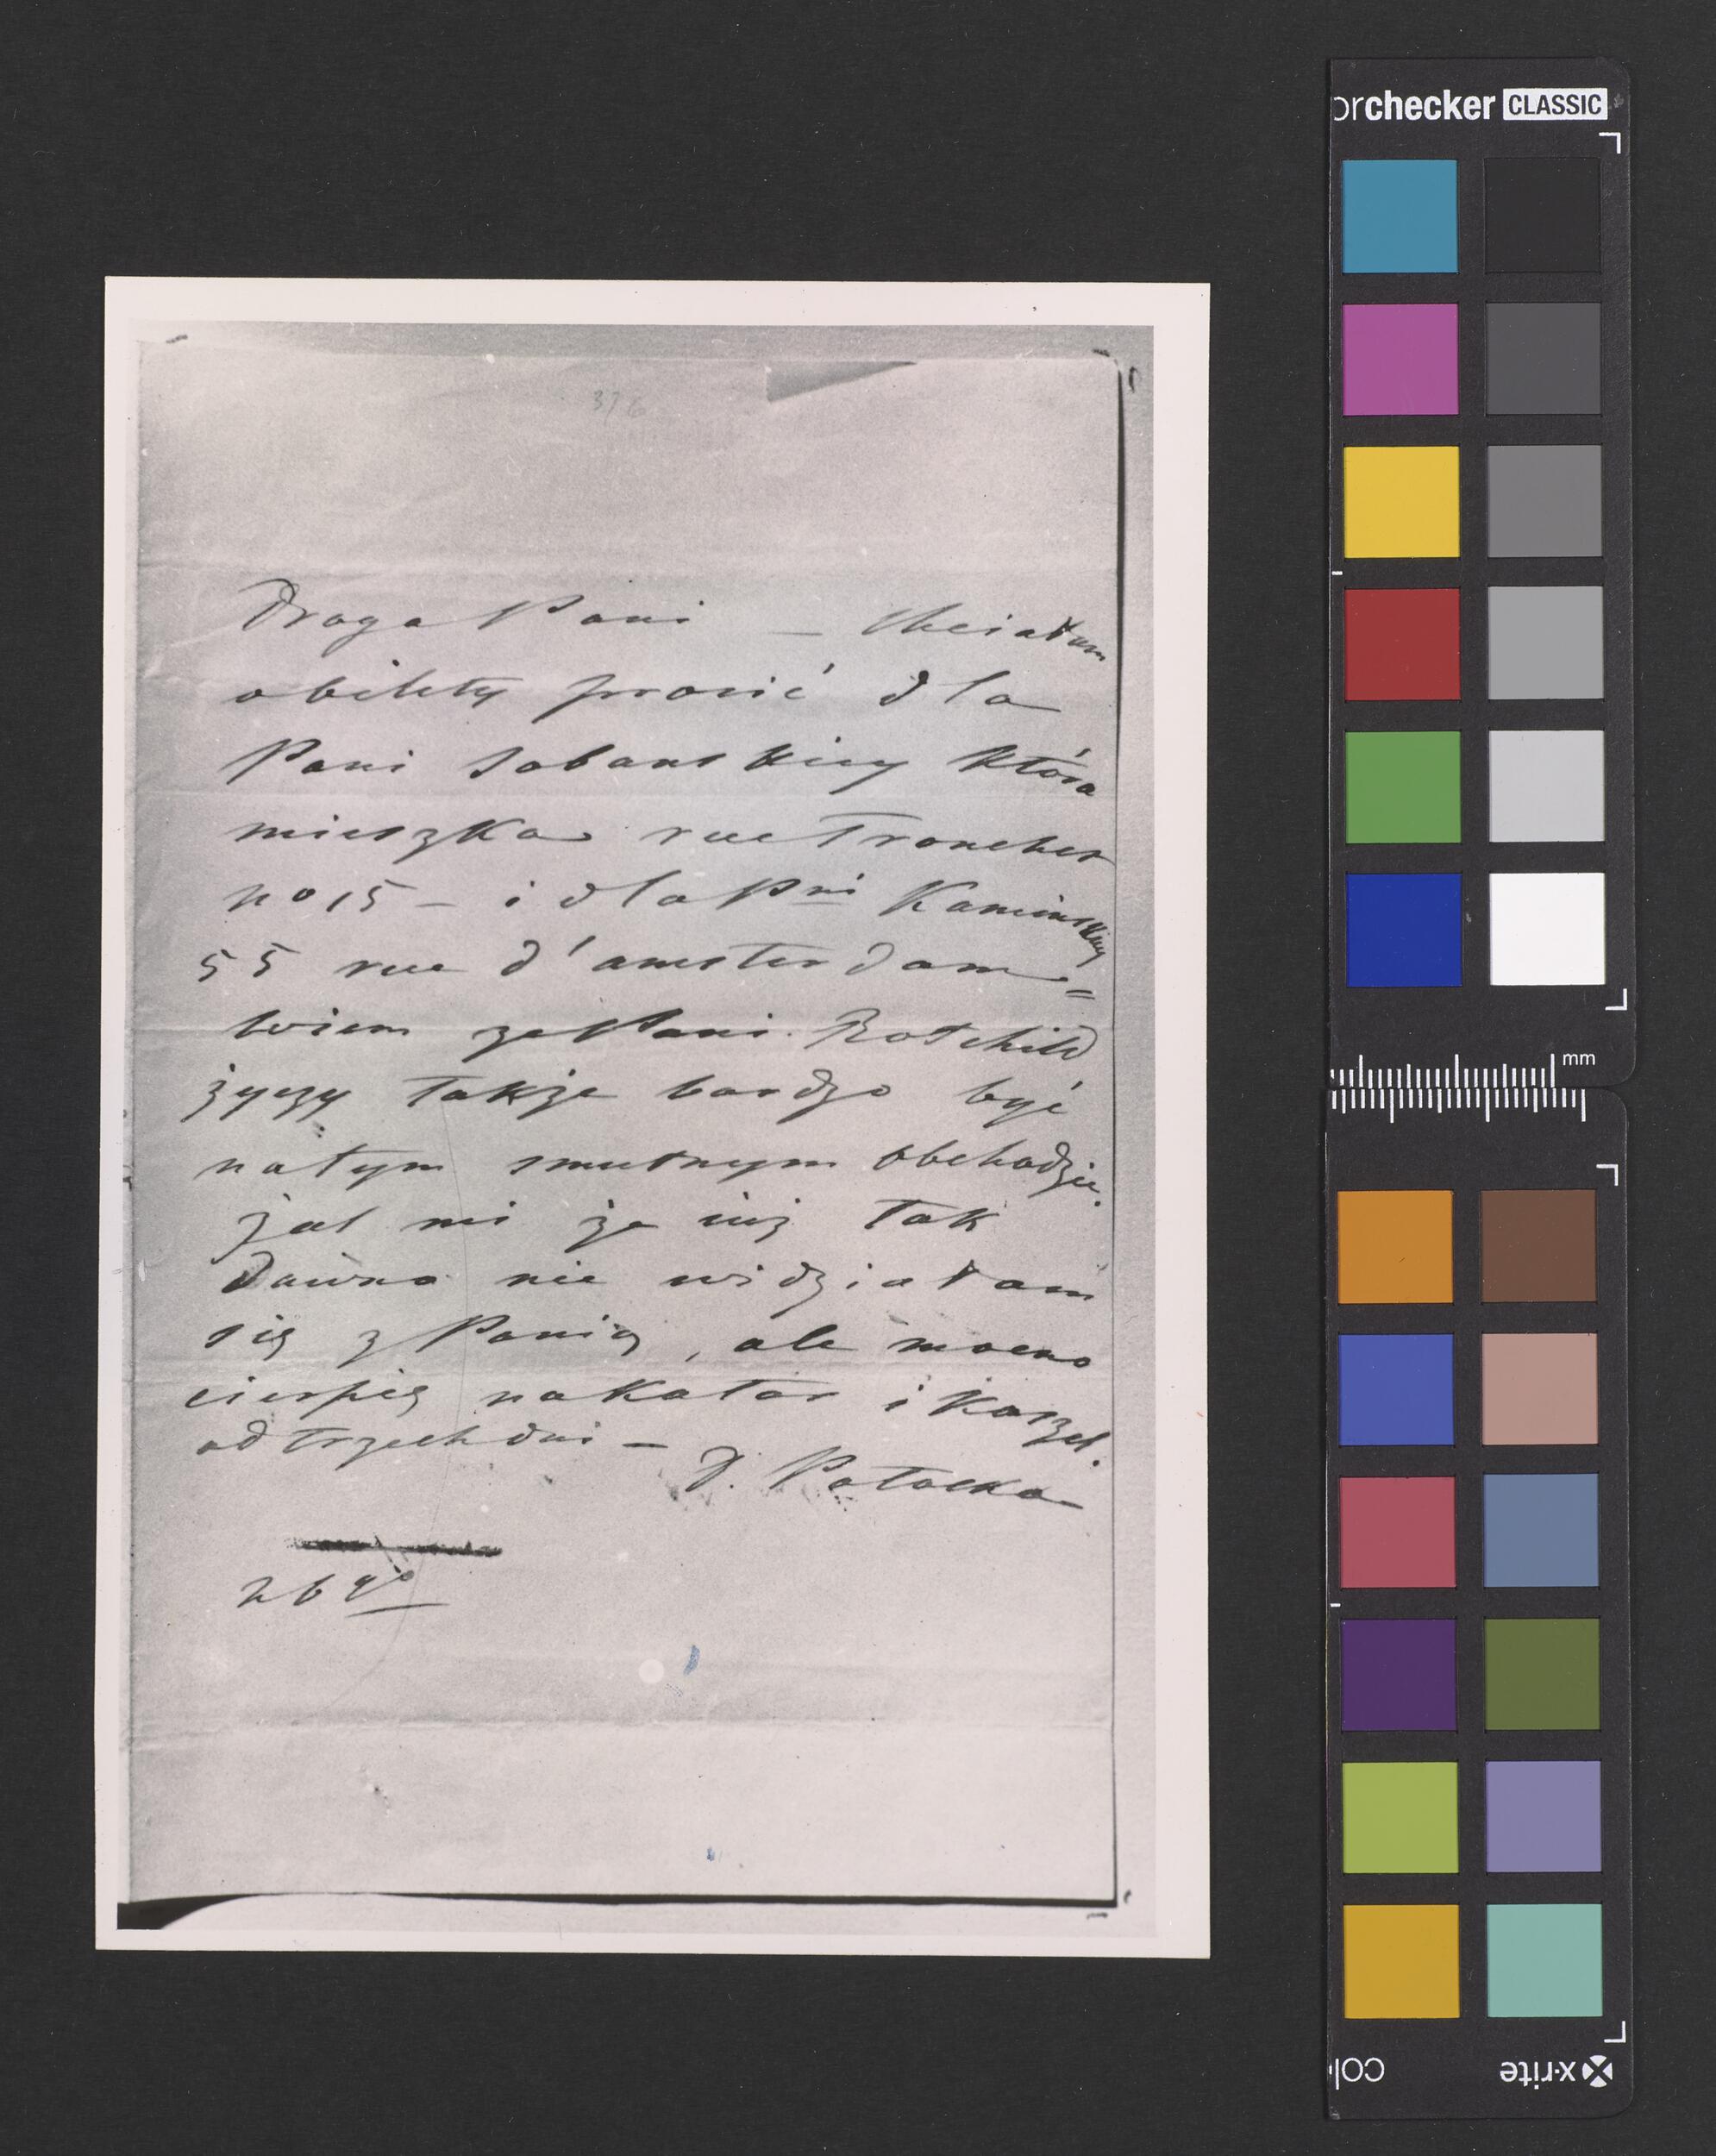 orchecker CLASSIC
376
Droga Pani — Chciałam
o bilety prosić dla
Pani Sobanskiey która
mieszka rue Tronchet
no 15 – i dla Pni Kaminskiey
55 rue d'amsterdam =
wiem ze Pani Rotchild
życzy także bardzo być
na tym smutnym obchodzie.
żal mi że iuż tak
dawno nie widziałam
się z Panią, ale mocno
cierpię na Katar i Kaszel.
od trzech dni —
D. Potocka
26
mm
x-rite
col